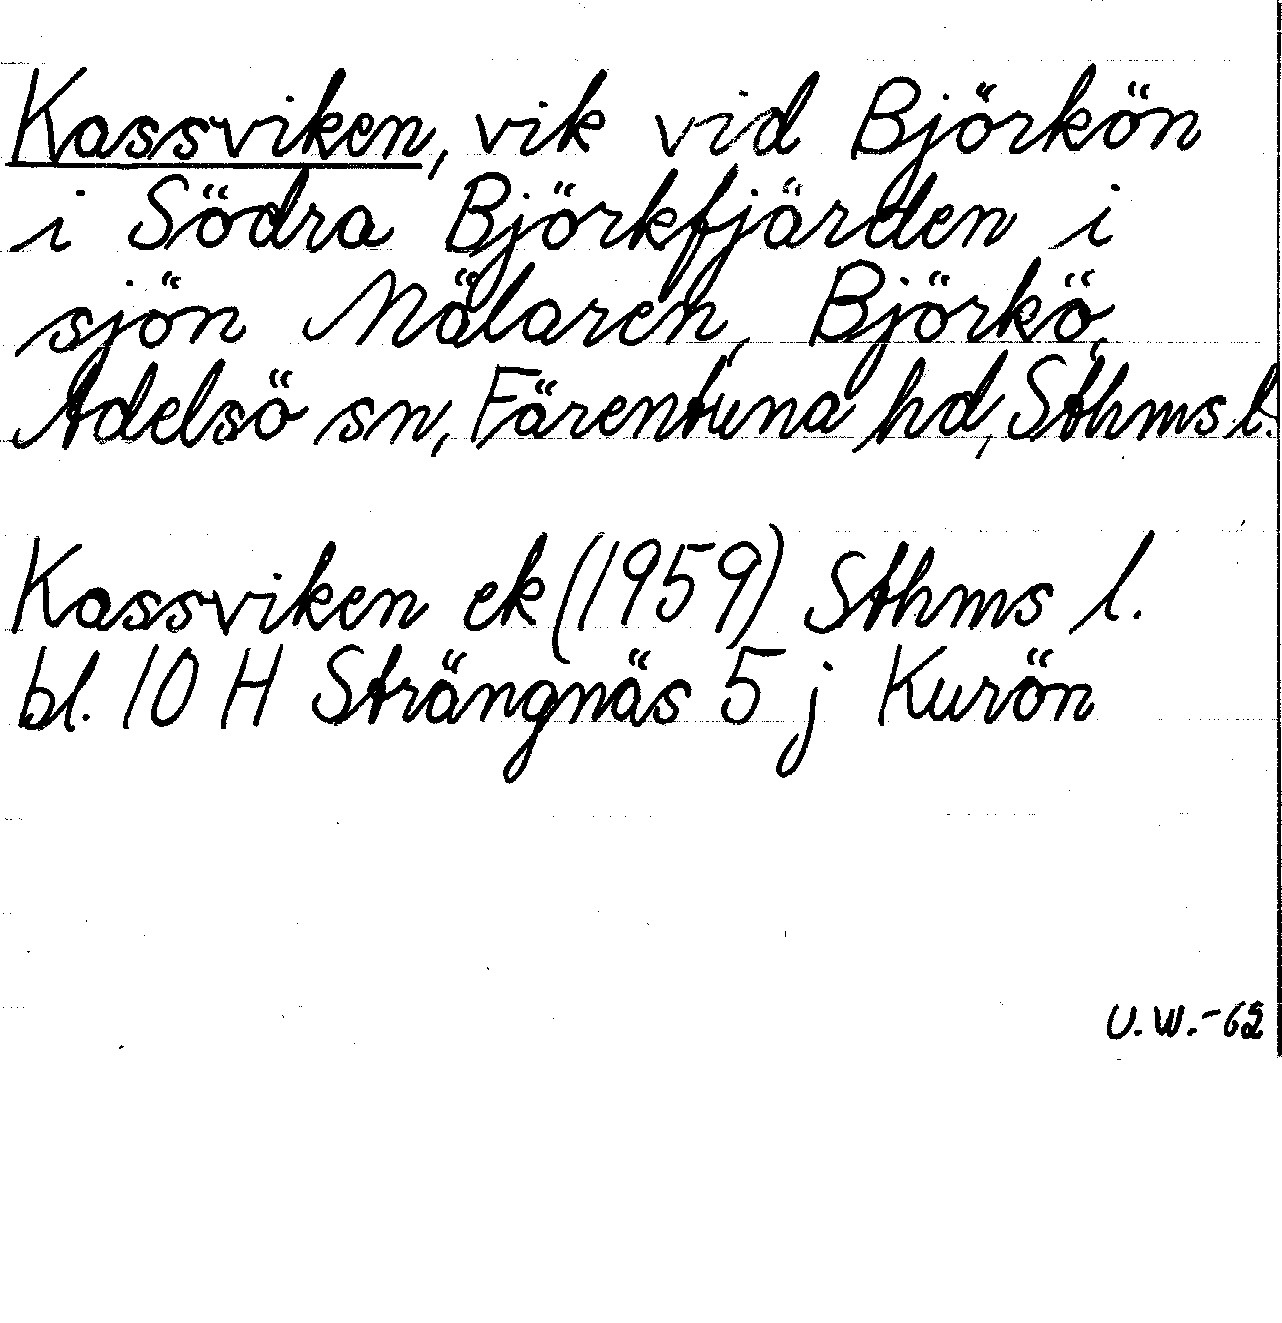 Kassviken, vik vid Björkön
i Södra Björkfjärden i
sjön Mälaren, Björkö,
Adelsö sn, Färentuna hd, Sthms l.
Kassviken ek (1959) Sthms l.
bl. 10 H Strängnäs 5 j Kurön
U.W.-62